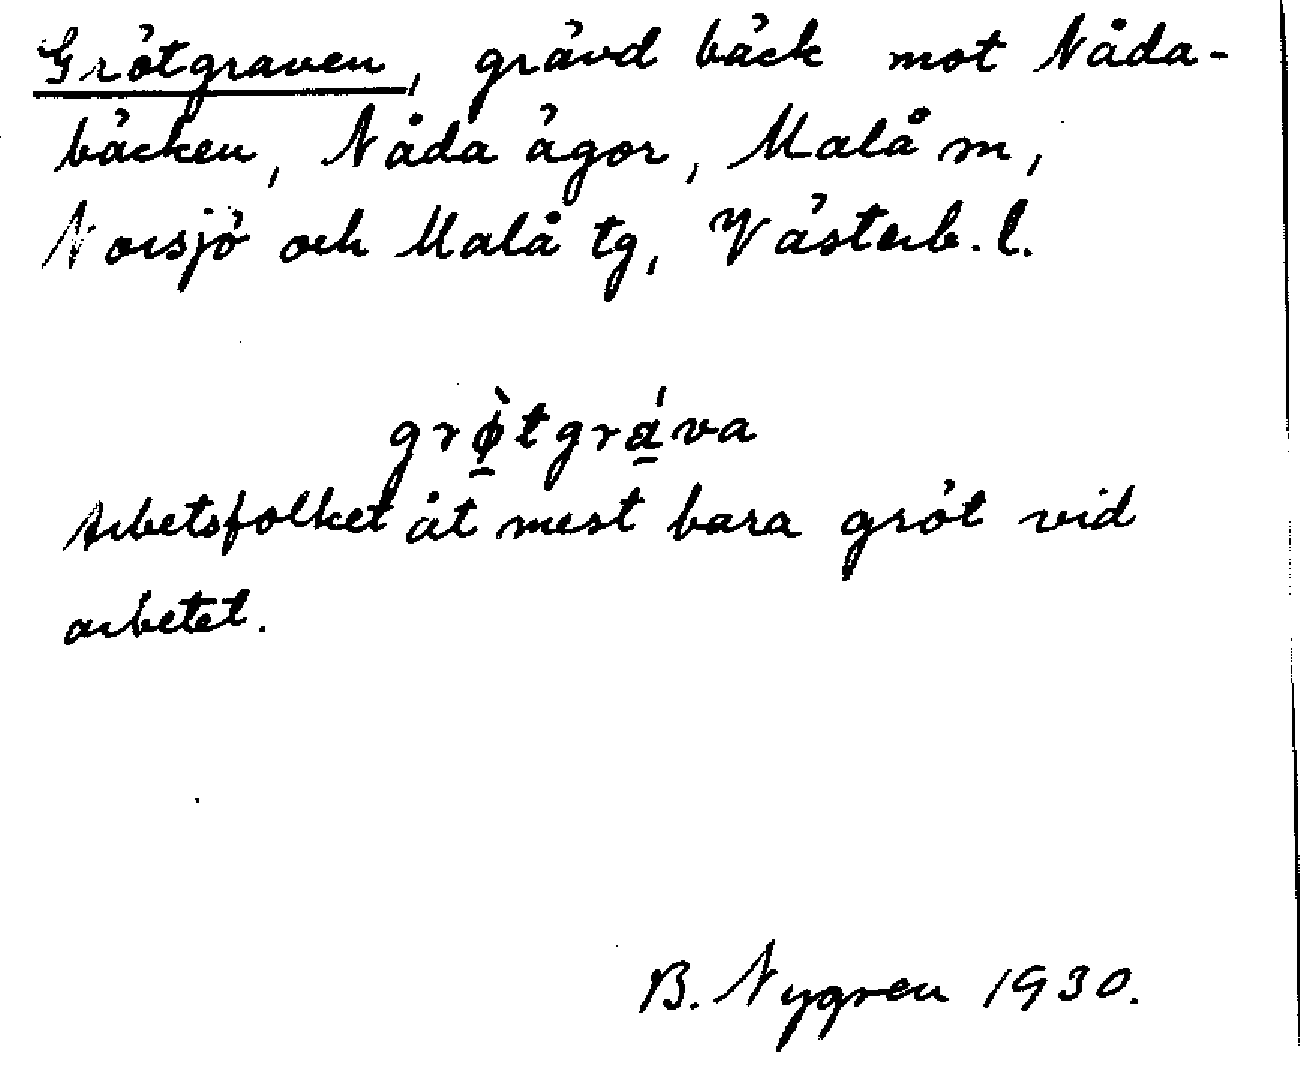 Grötgraven, grävd bäck mot Nåda-
bäcken, Nåda ägor, Malå sn,
Norsjö och Malå tg, Västerb. l.
grø̱̀tgrá̱va
Arbetsfolket åt mest bara gröt vid
arbetet.
B. Nygren 1930.